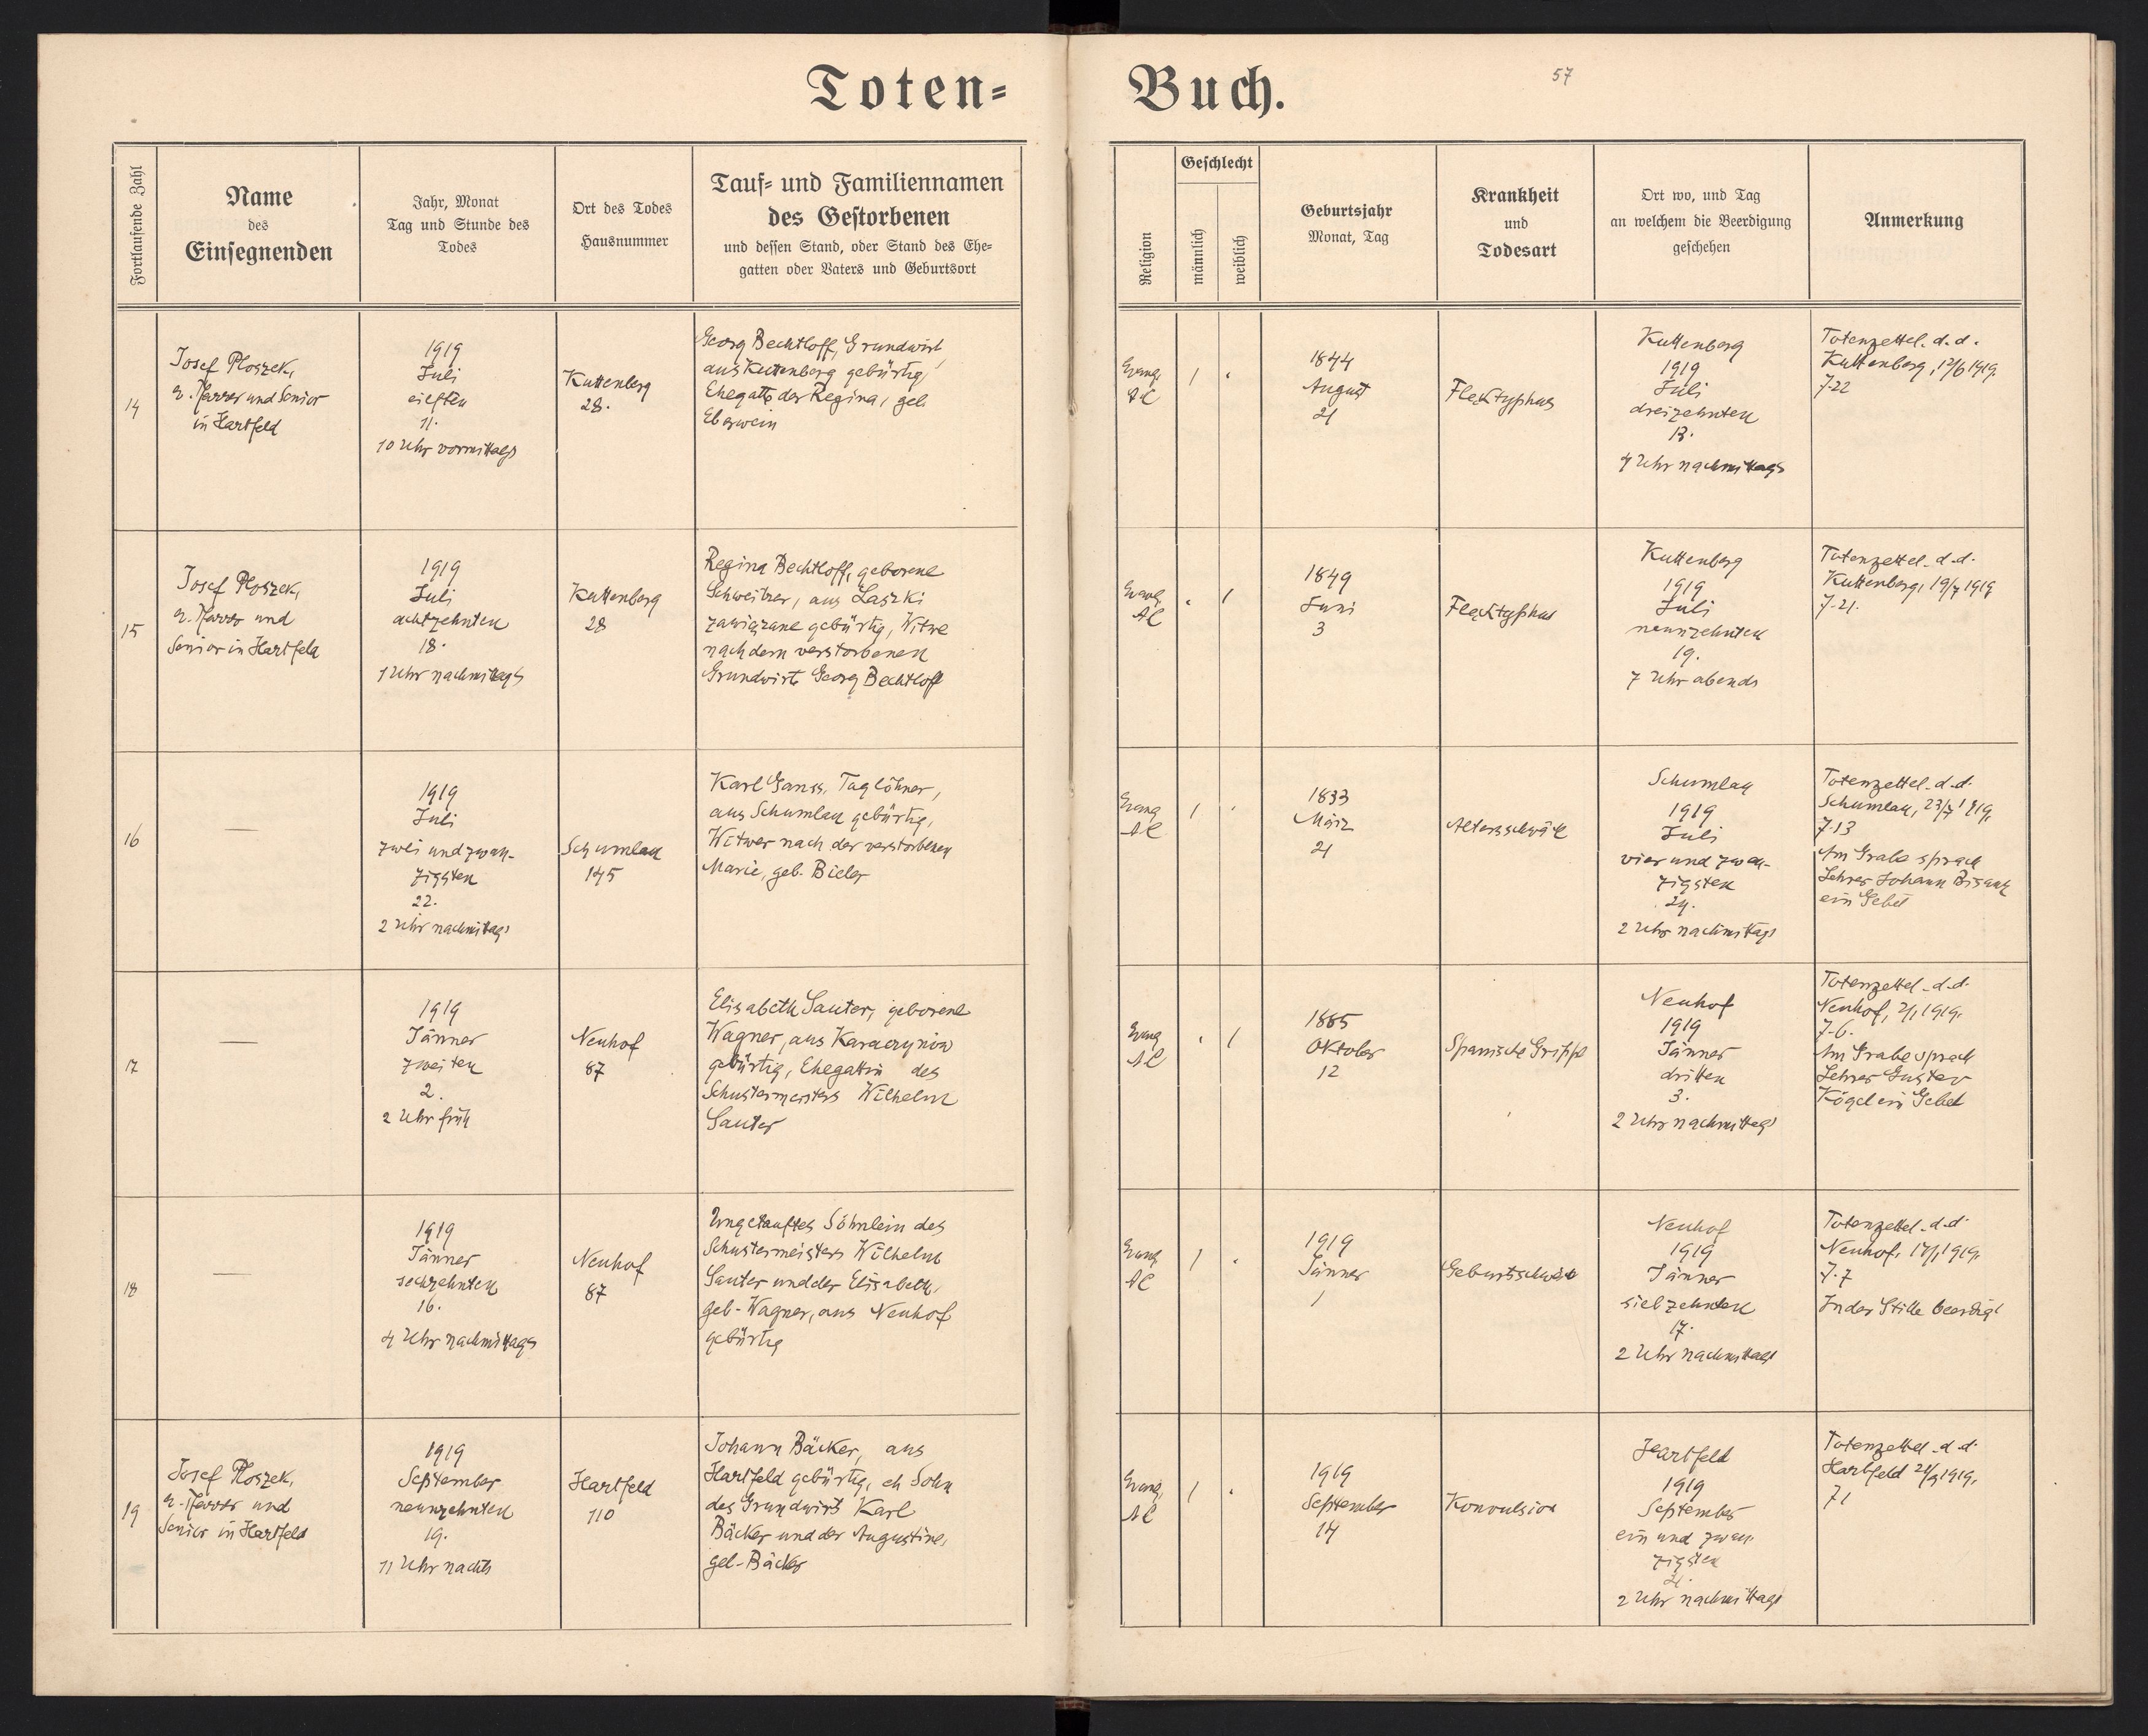 Toten-
Buch.
57
Fortlaufende Zahl
Name
des
Einsegnenden
Jahr, Monat
Tag und Stunde des
Todes
Ort des Todes
Hausnummer
Tauf- und Familiennamen
des Gestorbenen
und dessen Stand, oder Stand des Ehe-
gatten oder Vaters und Geburtsort
Religion
Geschlecht
männlich
weiblich
Geburtsjahr
Monat, Tag
Krankheit
und
Todesart
Ort wo, und Tag
an welchem die Beerdigung
geschehen
Anmerkung
14
Josef Ploszek,
e. Pfarrer und Senior
in Hartfeld
1919
Juli
eilften
11.
10 Uhr vormittags
Kuttenberg
28.
Georg Bechtloff, Grundwirt
aus Kuttenberg gebürtig,
Ehegatte der Regina, geb.
Eberwein
Evang.
AC
1
"
1844
August
21
Flecktyphus
Kuttenberg
1919
Juli
dreizehnten
13.
4 Uhr nachmittags
Totenzettel d. d.
Kuttenberg, 12/6 1919.
7.22
15
Josef Ploszek,
e. Pfarrer und
Senior in Hartfeld
1919
Juli
achtzehnten
18.
1 Uhr nachmittags
Kuttenberg
28
Regina Bechtloff, geborene
Schweitzer, aus Laszki
zawiązane gebürtig, Witwe
nach dem verstorbenen
Grundwirte Georg Bechtloff
Evang.
AC
"
1
1849
Juni
3
Flecktyphus
Kuttenberg
1919
Juli
neunzehnten
19.
7 Uhr abends
Totenzettel d. d.
Kuttenberg, 19/7 1919
7.21.
16
—
1919
Juli
zwei und zwan-
zigsten
22.
2 Uhr nachmittags
Schumlau
145
Karl Ganss, Taglöhner,
aus Schumlau gebürtig,
Witwer nach der verstorbenen
Marie, geb. Bieler
Evang
AC
1
"
1833
März
21
Altersschwäche
Schumlau
1919
Juli
vier und zwan-
zigsten
24.
2 Uhr nachmittags
Totenzettel d. d.
Schumlau, 23/7 1919,
7.13
Am Grabe sprach
Lehrer Johann Bisanz
ein Gebet
17
—
1919
Jänner
zweiten
2.
2 Uhr früh
Neuhof
87
Elisabeth Sauter, geborene
Wagner, aus Karaczynów
gebürtig, Ehegattin des
Schustermeisters Wilhelm
Sauter
Evang
AC
"
1
1885
Oktober
12
Spanische Grippe
Neuhof
1919
Jänner
dritten
3.
2 Uhr nachmittags
Totenzettel d. d.
Neuhof, 2/1 1919.
7.6.
Am Grabe sprach
Lehrer Gustav
Kögel ein Gebet
18
—
1919
Jänner
sechzehnten
16.
4 Uhr nachmittags
Neuhof
87
Ungetauftes Söhnlein des
Schustermeisters Wilhelm
Sauter und der Elisabeth,
geb. Wagner, aus Neuhof
gebürtig
Evang.
AC
1
"
1919
Jänner
1
Neuhof
1919
Jänner
siebzehnten
17.
2 Uhr nachmittags
Totenzettel d. d.
Neuhof, 17/1 1919.
7.7
In der Stille beerdigt
19
Josef Ploszek,
e. Pfarrer und
Senior in Hartfeld
1919
September
neunzehnten
19.
11 Uhr nachts
Hartfeld
110
Johann Bäcker, aus
Hartfeld gebürtig, eh Sohn
des Grundwirts Karl
Bäcker und der Augustine,
geb. Bäcker
Evang.
AC
1
"
1919
September
14
Konvulsion
Hartfeld
1919
September
ein und zwan-
zigsten
21.
2 Uhr nachmittags
Totenzettel d d.
Hartfeld 21/9 1919,
71